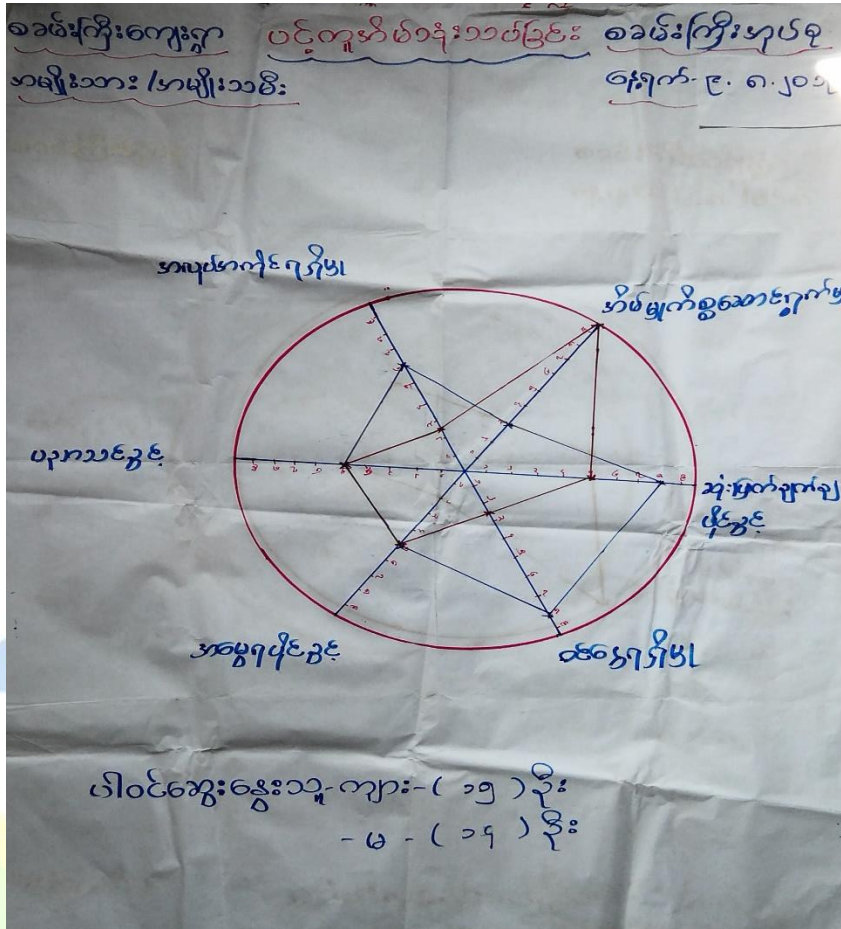 စခမ်းကြီးကျေးရွာ ပင့်ကူအိမ်ဝန်းသပ်ခြင်း စခမ်းကြီးအုပ်စု
အမျိုးသား/အမျိုးသမီး နေ့ရက်- ၉.၈.၂၀၁
အလုပ်အကိုင်ရရှိမှု
အိမ်မှုကိစ္စဆောင်ရွက်မှ
ပညာသင်ခွင့်
ဆုံးဖြတ်ချက်ချ
ပိုင်ခွင့်
အမွေရပိုင်ခွင့်
ဝင်ငွေရရှိမှု
ပါဝင်ဆွေးနွေးသူ-ကျား-(၁၅)ဦး
- မ - (၁၄)ဦး